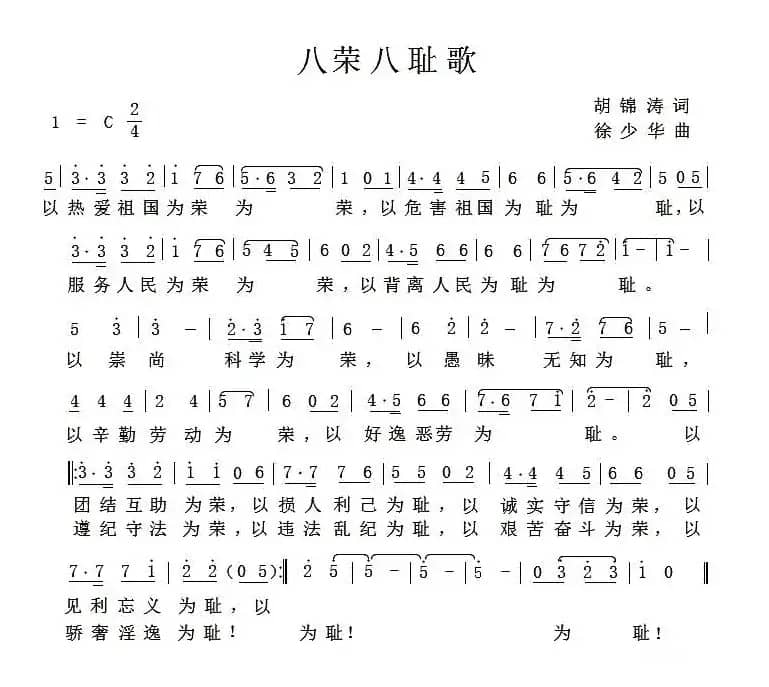 八荣八耻歌
1 = C 2/4
胡锦涛词
徐少华曲
5 | 3·3 3 2 | 1 7 6 | 5·6 3 2 | 1 0 1 | 4·4 4 5 | 6 6 | 5·6 4 2 | 5 0 5 |
以热爱祖国为荣 为 荣,以危害祖国为耻为 耻,以
3·3 3 2 | 1 7 6 | 5 4 5 | 6 0 2 | 4·5 6 6 | 6 6 | 7 6 7 2 | 1 - | 1 - |
服务人民为荣 为 荣,以背离人民为耻为 耻。
5 3 | 3 - | 2·3 1 7 | 6 - | 6 2 | 2 - | 7·2 7 6 | 5 - |
以崇尚 科学为 荣, 以愚昧 无知为 耻,
4 4 4 | 2 4 | 5 7 | 6 0 2 | 4·5 6 6 | 7·6 7 1 | 2 - | 2 0 5 |
以辛勤劳动为 荣,以好逸恶劳为 耻。 以
‖: 3·3 3 2 | 1 1 0 6 | 7·7 7 6 | 5 5 0 2 | 4·4 4 5 | 6 6 0 5 |
团结互助 为荣,以损人利己为耻,以 诚实守信为荣,以
遵纪守法 为荣,以违法乱纪为耻,以 艰苦奋斗为荣,以
7·7 7 1 | 2 2 (0 5) :‖ 2 5 | 5 - | 5 - | 5 - | 0 3 2 3 | 1 0 ‖
见利忘义 为耻,以
骄奢淫逸 为耻! 为耻! 为 耻!